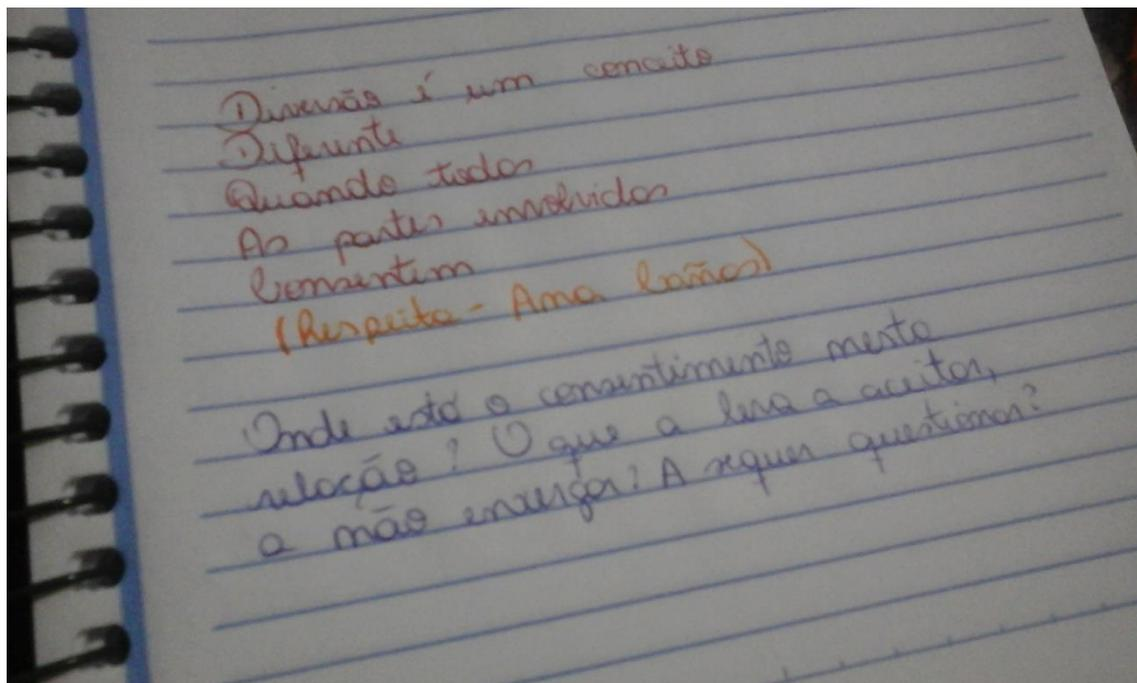 Diversão é um conceito
Diferente
Quando todas
As partes envolvidas
Consentem
(Respeito - Ana Cañas)
Onde está o consentimento nesta
relação? O que a leva a aceitar,
a não enxergar? A sequer questionar?